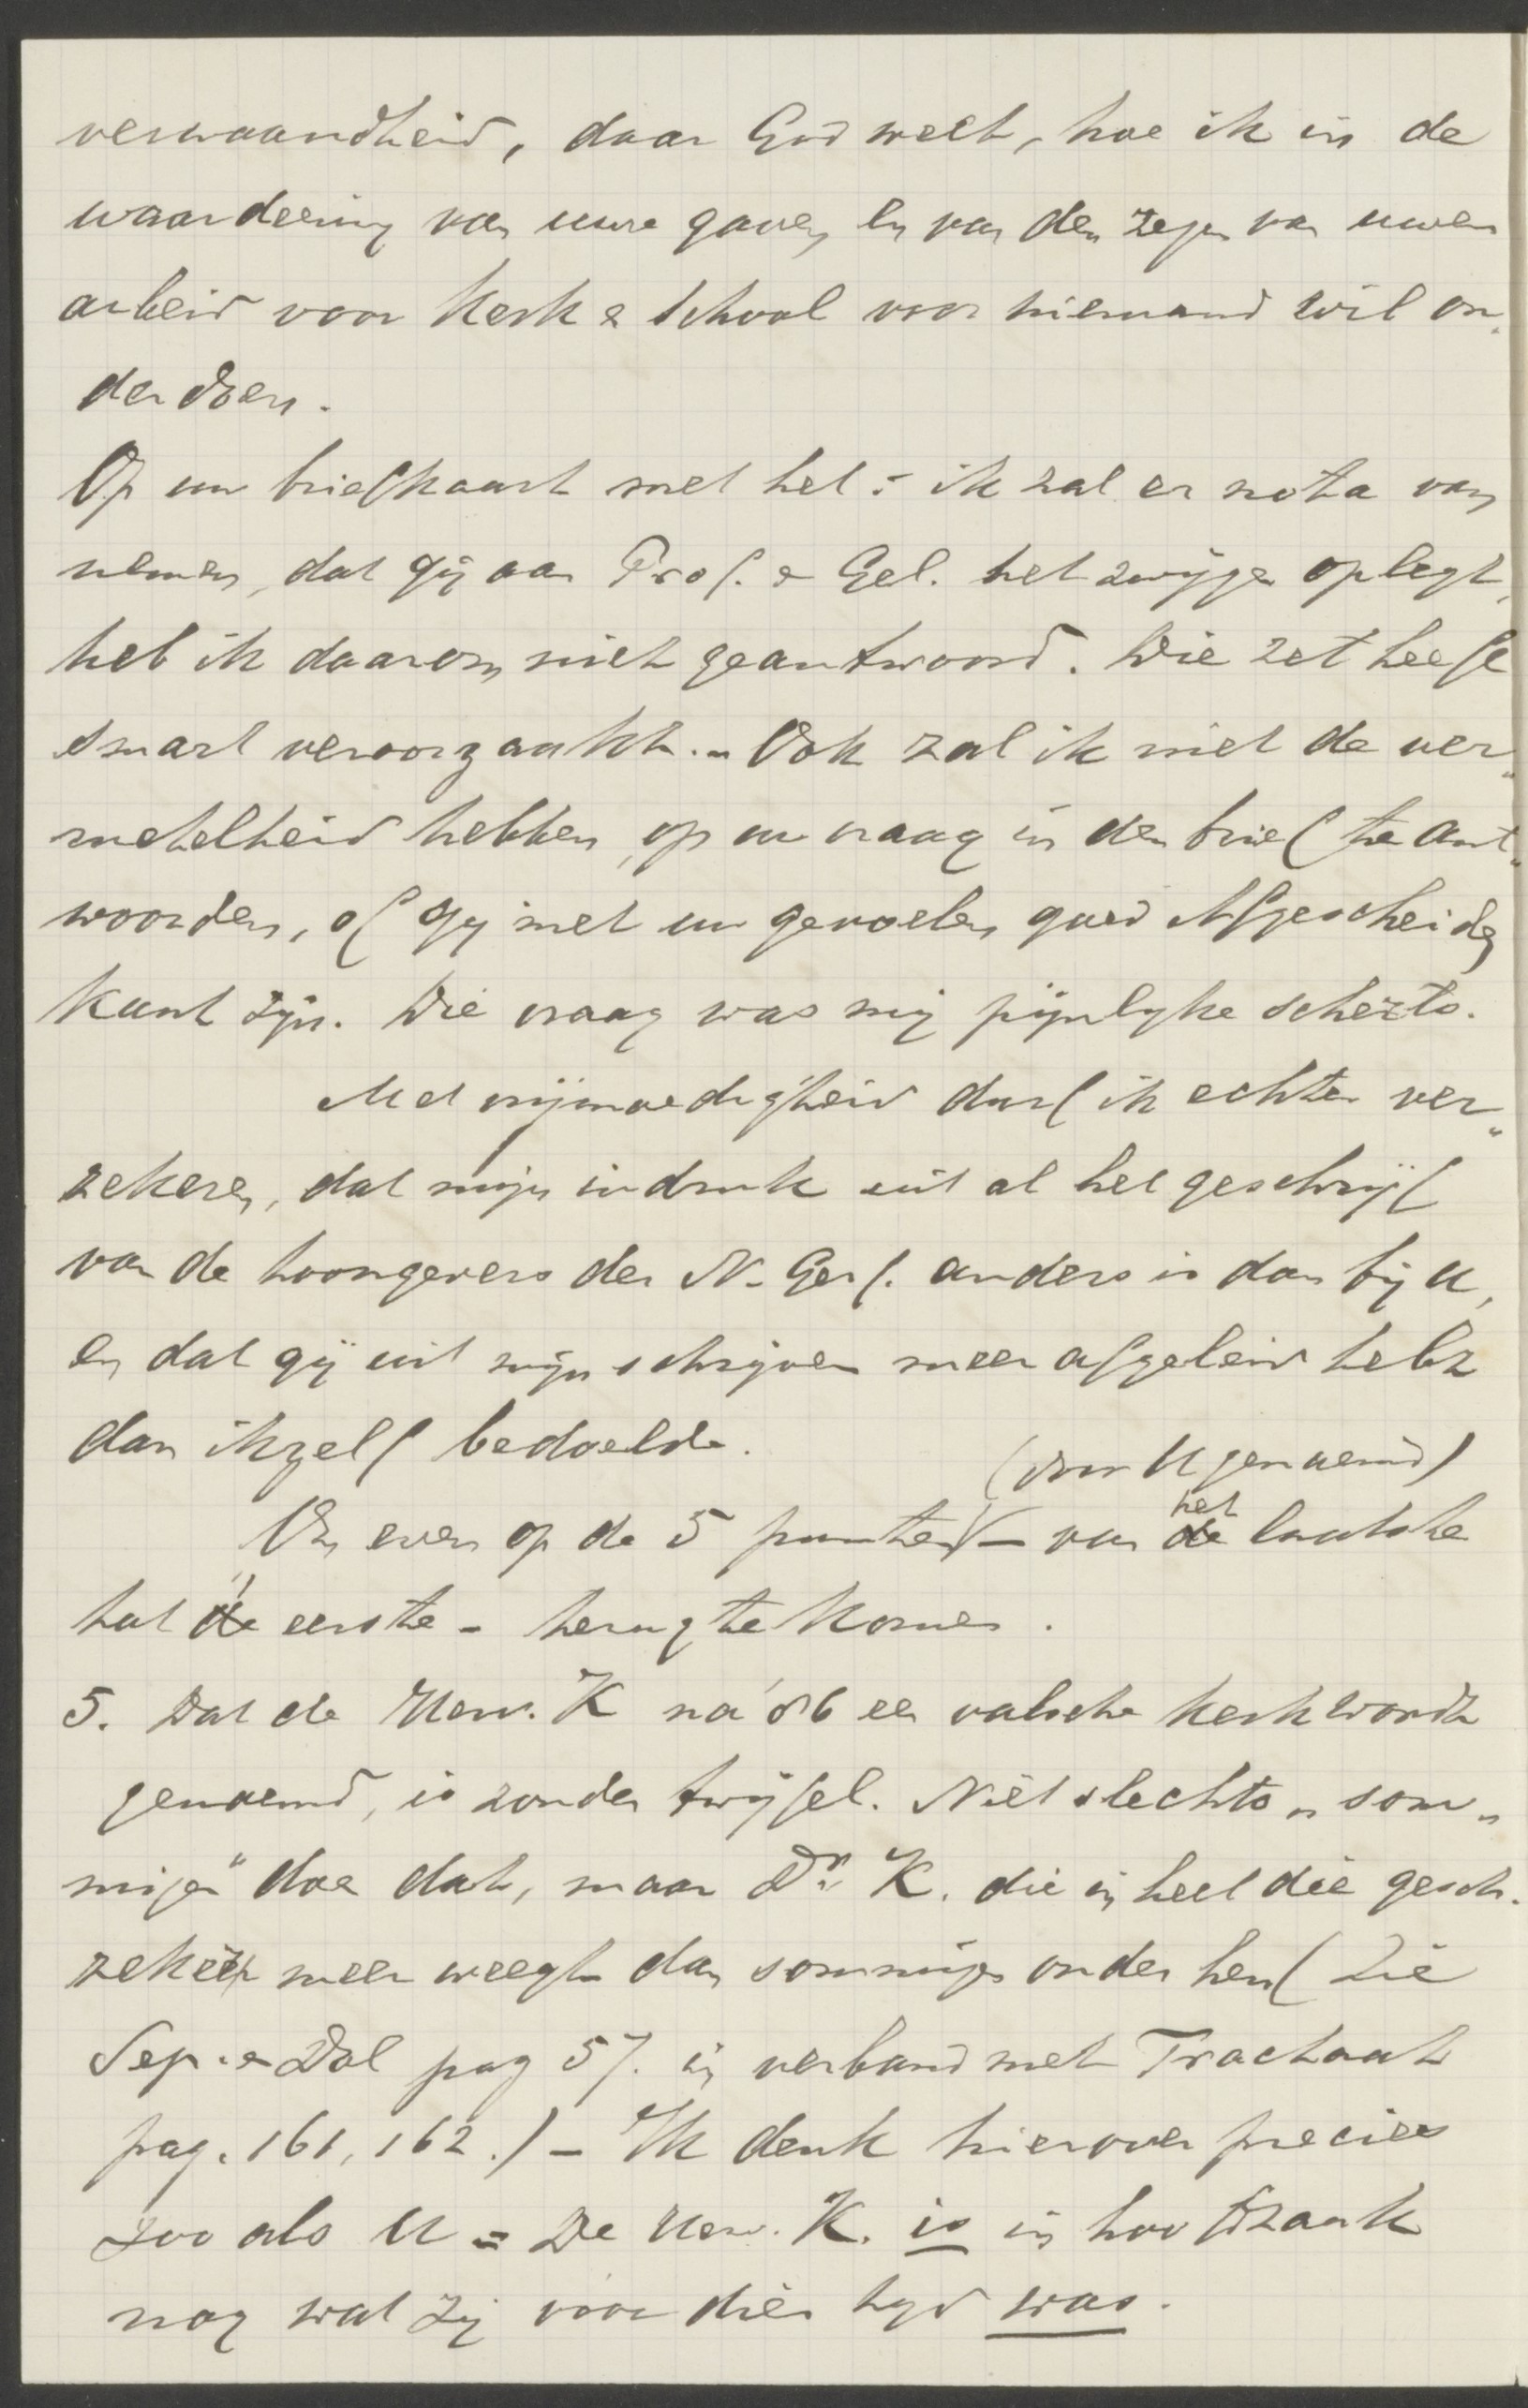 verwaandheid, daar God weet, hoe ik in de
waardeering van uwe gaven en van den zegen van uwen
arbeid voor Kerk & School voor niemand wil on„
derdoen.
Op uw briefkaart met het: ik zal er nota van
nemen, dat gij aan Prof. & Gel. het zwijgen oplegt,
heb ik daarom niet geantwoord. Die zet heeft
smart veroorzaakt. – Ook zal ik niet de ver„
metelheid hebben, op uw vraag in den brief te ant„
woorden, of gij met uw gevoelen goed Afgescheiden
kunt zijn. Die vraag was mij pijnlijke scherts.
Met vrijmoedigheid durf ik echter ver„
zekeren, dat mijn indruk uit al het geschrijf
van de toongevers der N. Geref. anders is dan bij U,
en dat gij uit mijn schrijven meer afgeleid hebt
dan ikzelf bedoelde.
(door U genoemd)
Om even op de 5 punten – van het de laatste
tot 't de eerste – terug te komen.
5. Dat de Herv. K na '86 een valsche kerk wordt
genoemd, is zonder twijfel. Niet slechts „som„
migen" doen dat, maar Dr. K. die in heel die gesch.
zeker meer weegt dan sommigen onder hen (Zie
Sep. & Dol pag 57. in verband met Tractaat
pag. 161, 162.) – Ik denk hierover precies
zoo als U = De Herv. K. is in hoofdzaak
nog wat zij vóór dien tijd was.